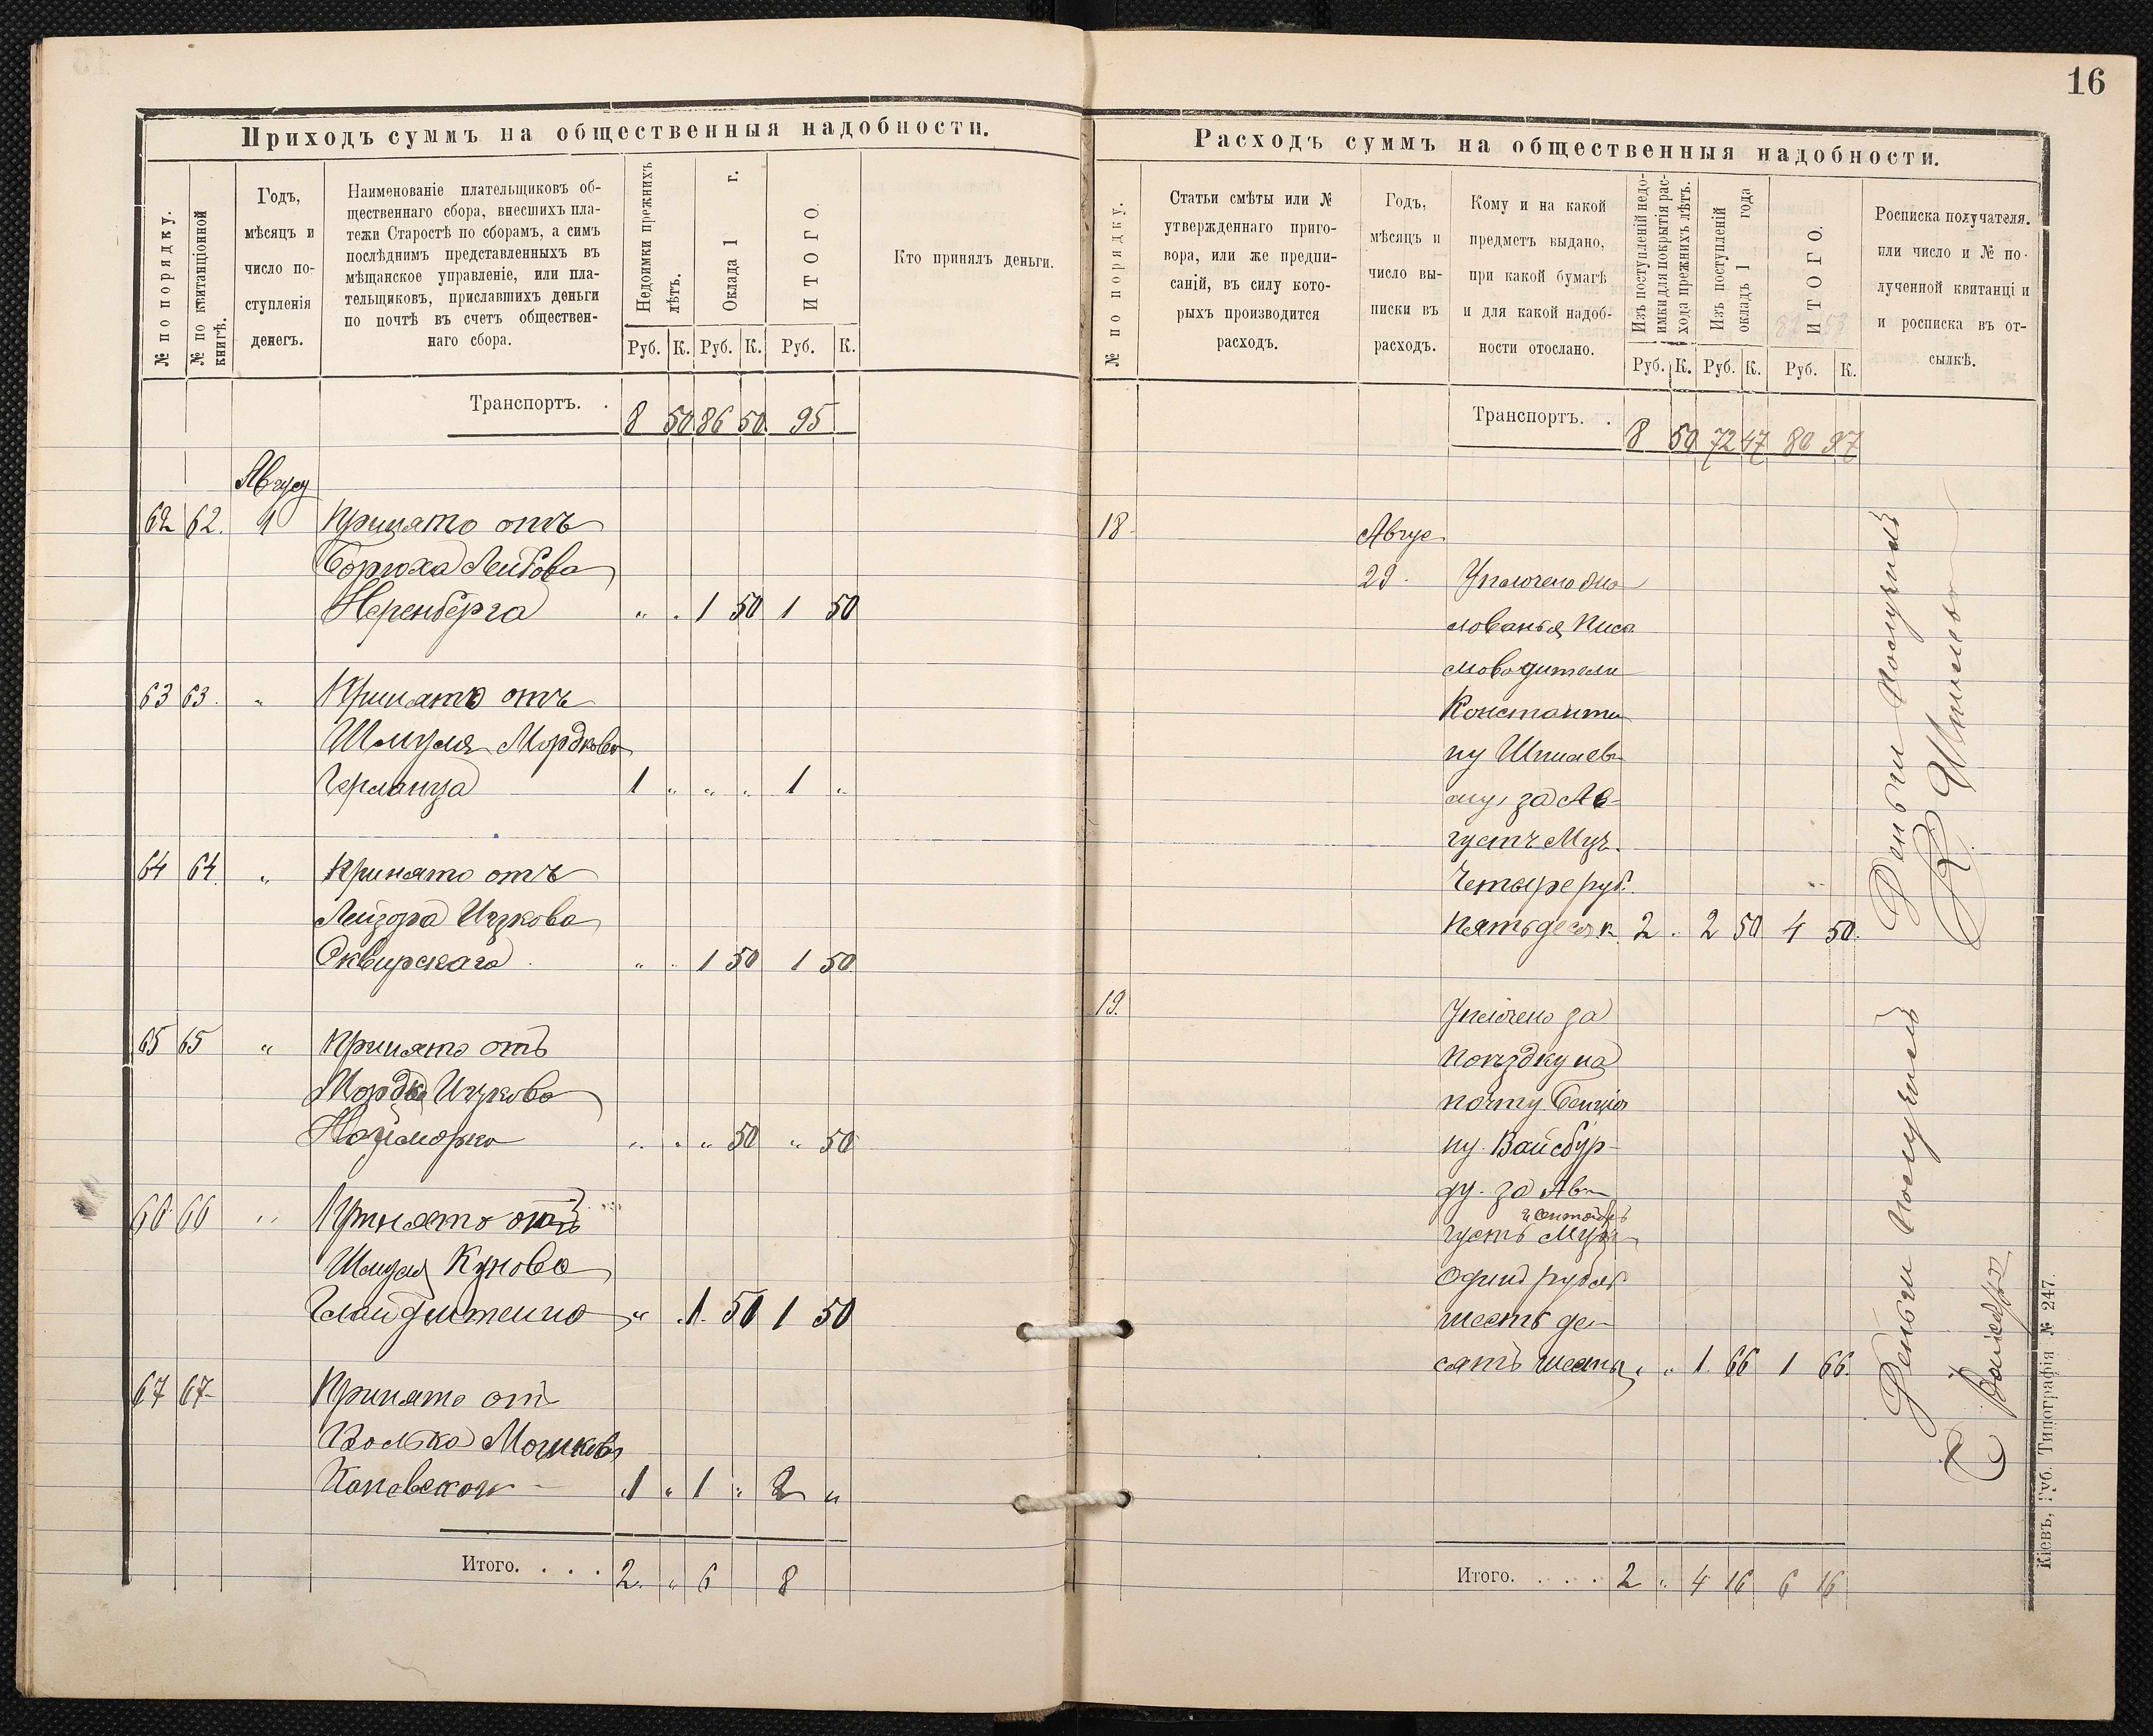 16
Приходъ суммъ на общественныя надобности.
№ по порядку.
№ по квитанціонной книгѣ.
Годъ,
мѣсяцъ и
число по-
ступленія
денегъ.
Наименованіе плательщиковъ об-
щественнаго сбора, внесшихъ пла-
тежи Старостѣ по сборамъ, а симъ
послѣднимъ представленныхъ въ
мѣщанское управленіе, или пла-
тельщиковъ, приславшихъ деньги
по почтѣ въ счетъ обществен-
наго сбора.
Недоимки прежнихъ
лѣтъ.
Оклада 1 г.
ИТОГО.
Кто принялъ деньги.
Руб. К. Руб. К. Руб. К.
Транспортъ. . 8 50 86 50 95
Авгус
62 62. 1 Принято отъ
Борюха Лейбова
Неренберга „ . 1 50 1 50
63 63. „ Принято отъ
Шмуля Мордкова
Германца 1 „ „ „ 1 „
64 64. „ Принято отъ
Лейзора Ицкова
Сквирскаго „ „ 1 50 1 50
65 65 „ Принято отъ
Мордка Ицкова
„ „ „ 50 „ 50
66 66 „ Принято отъ
Шмуля Кунова
„ 1. 50 1 50
67 67 Принято отъ
Волька Мошкова
Каневскаго 1 „ 1 „ 2 „
Итого. . . . 2. „ 6 8
Расходъ суммъ на общественныя надобности.
№ по порядку.
Статьи смѣты или №
утвержденнаго приго-
вора, или же предпи-
саній, въ силу кото-
рыхъ производится
расходъ.
Годъ,
мѣсяцъ и
число вы-
писки въ
расходъ.
Кому и на какой
предметъ выдано,
при какой бумагѣ
и для какой надоб-
ности отослано.
Изъ поступленій недо-
имки для покрытія рас-
хода прежнихъ лѣтъ.
Изъ поступленій
окладъ 1 года
ИТОГО.
82 53
Росписка получателя.
или число и № по-
лученной квитанціи
и росписка въ от-
сылкѣ.
Руб. К. Руб. К. Руб. К.
Транспортъ. . 8 50 72 47 80 97
18 Авгус
29. Уплочено жа
лованья Пись
моводителю
Константи
ну Шпилев
му, за Ав-
густъ Мцъ.
Четыре руб.
Пятьдесят к. 2 . 2 50 4 50.
Деньги получилъ
К Шпилев
19. Уплочено за
поѣздку на
почту Бенціо
ну Вайсбур-
ду. за Ав
и сентябрь
густъ Мцъ
Одинъ рубль
шесть де-
сять шесть „ „ 1. 66 1 66.
Деньги получилъ
Итого. . . . . 2 „ 4 16 6 16
Кіевъ, Губ. Типографія № 247.